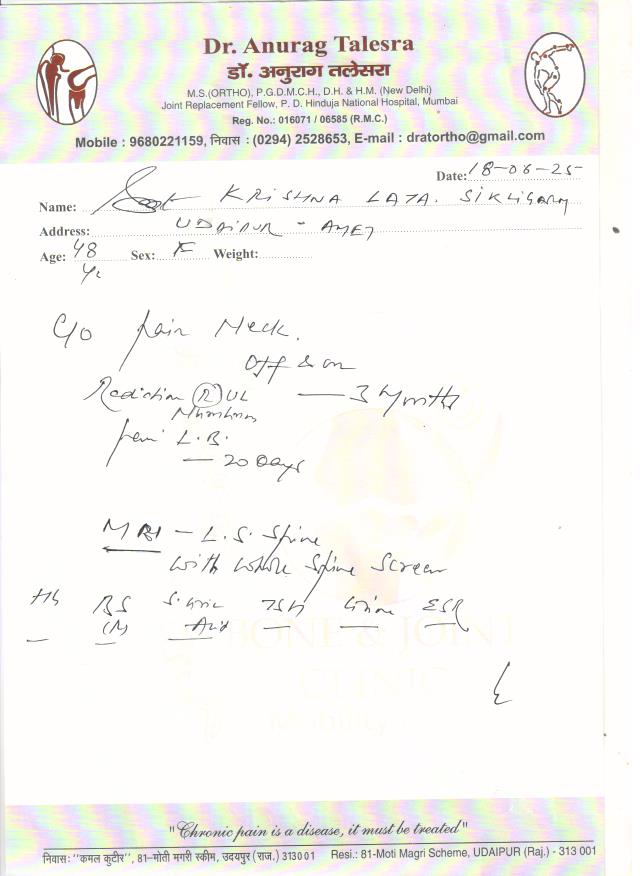 Dr. Anurag Talesra
डॉ. अनुराग तलेसरा
M.S.(ORTHO), P.G.D.M.C.H., D.H. & H.M. (New Delhi)
Joint Replacement Fellow, P. D. Hinduja National Hospital, Mumbai
Reg. No.: 016071 / 06585 (R.M.C.)
Mobile : 9680221159, निवास : (0294) 2528653, E-mail : dratortho@gmail.com
Date: 18-06-25
Name: KRISHNA LATA. SIKLIGARH
Address: UDAIPUR - AMET
Age: 48 Sex: F Weight:
C/o pain Neck.
Off & on
Radiation (R) UL — 3 Months
Numbness
pain L.B.
— 20 Days
MRI - L.S. Spine
with whole spine screen
Hb BS S. Uric TSH Urine ESR
(N) Acid
BONE & JOINT
CLINIC
Mobility
"Chronic pain is a disease, it must be treated"
निवास: "कमल कुटीर", 81-मोती मगरी स्कीम, उदयपुर (राज.) 313001 Resi.: 81-Moti Magri Scheme, UDAIPUR (Raj.) - 313 001